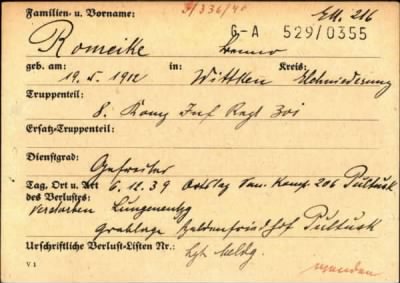 Familien- u. Vorname: 3/336/40 Ell. 216
Romeike Benno G-A 529/0355
geb. am: 19.5.1912 in: Wittken Kreis: Elchniederung
Truppenteil:
8. Komp Inf Regt 301
Ersatz-Truppenteil:
Dienstgrad: Gefreiter
Tag, Ort u. Art 6.12.39 Ortslaz San. Komp. 206 Pultusk
des Verlustes:
verstorben Lungenentzg
Grablage Heldenfriedhof Pultusk
Urschriftliche Verlust-Listen Nr.: Meldg.
V 1